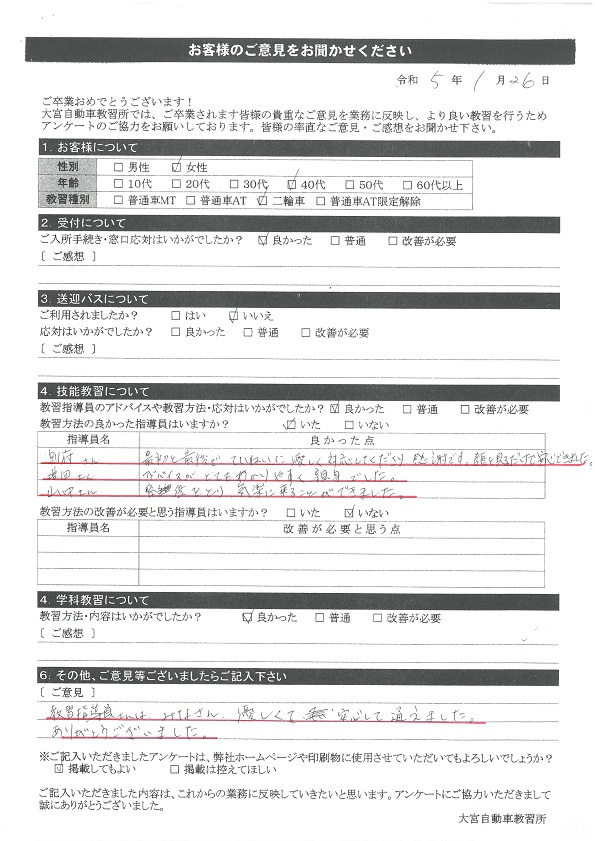 お客様のご意見をお聞かせください
令和 5 年 1 月 26 日
ご卒業おめでとうございます！
大宮自動車教習所では、ご卒業されます皆様の貴重なご意見を業務に反映し、より良い教習を行うため
アンケートのご協力をお願いしております。皆様の率直なご意見・ご感想をお聞かせ下さい。
1. お客様について
性別 □ 男性 ☑ 女性
年齢 □ 10代 □ 20代 □ 30代 ☑ 40代 □ 50代 □ 60代以上
教習種別 □ 普通車MT □ 普通車AT ☑ 二輪車 □ 普通車AT限定解除
2. 受付について
ご入所手続き・窓口応対はいかがでしたか？ ☑ 良かった □ 普通 □ 改善が必要
〔 ご感想 〕
3. 送迎バスについて
ご利用されましたか？ □ はい ☑ いいえ
応対はいかがでしたか？ □ 良かった □ 普通 □ 改善が必要
〔 ご感想 〕
4. 技能教習について
教習指導員のアドバイスや教習方法・応対はいかがでしたか？ ☑ 良かった □ 普通 □ 改善が必要
教習方法の良かった指導員はいますか？ ☑ いた □ いない
指導員名 良かった点
別府さん 最初と最後で ていねいに 優しく 対応してくださり 感謝です。顔を見るだけで安心できました。
さん アドバイスが とても わかりやすく 親身でした。
山中さん などり 気楽に 来ることができました。
教習方法の改善が必要と思う指導員はいますか？ □ いた ☑ いない
指導員名 改善が必要と思う点
4. 学科教習について
教習方法・内容はいかがでしたか？ ☑ 良かった □ 普通 □ 改善が必要
〔 ご感想 〕
6. その他、ご意見等ございましたらご記入下さい
〔 ご意見 〕
教習指導員さんは みなさん、優しくて 安心して 通えました。
ありがとうございました。
※ご記入いただきましたアンケートは、弊社ホームページや印刷物に使用させていただいてもよろしいでしょうか？
☑ 掲載してもよい □ 掲載は控えてほしい
ご記入いただきました内容は、これからの業務に反映していきたいと思います。アンケートにご協力いただきまして
誠にありがとうございました。
大宮自動車教習所